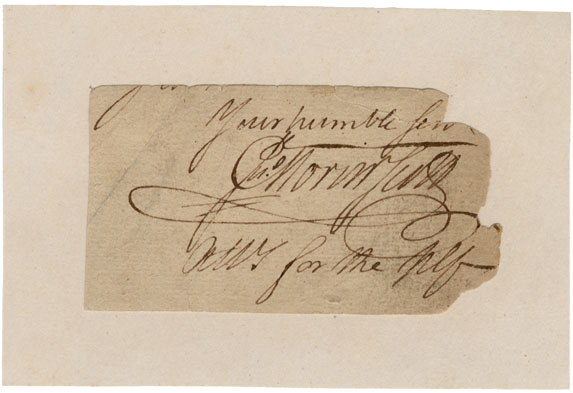 Your humble Ser
Jno. Morin Scott
Atty for the Plf